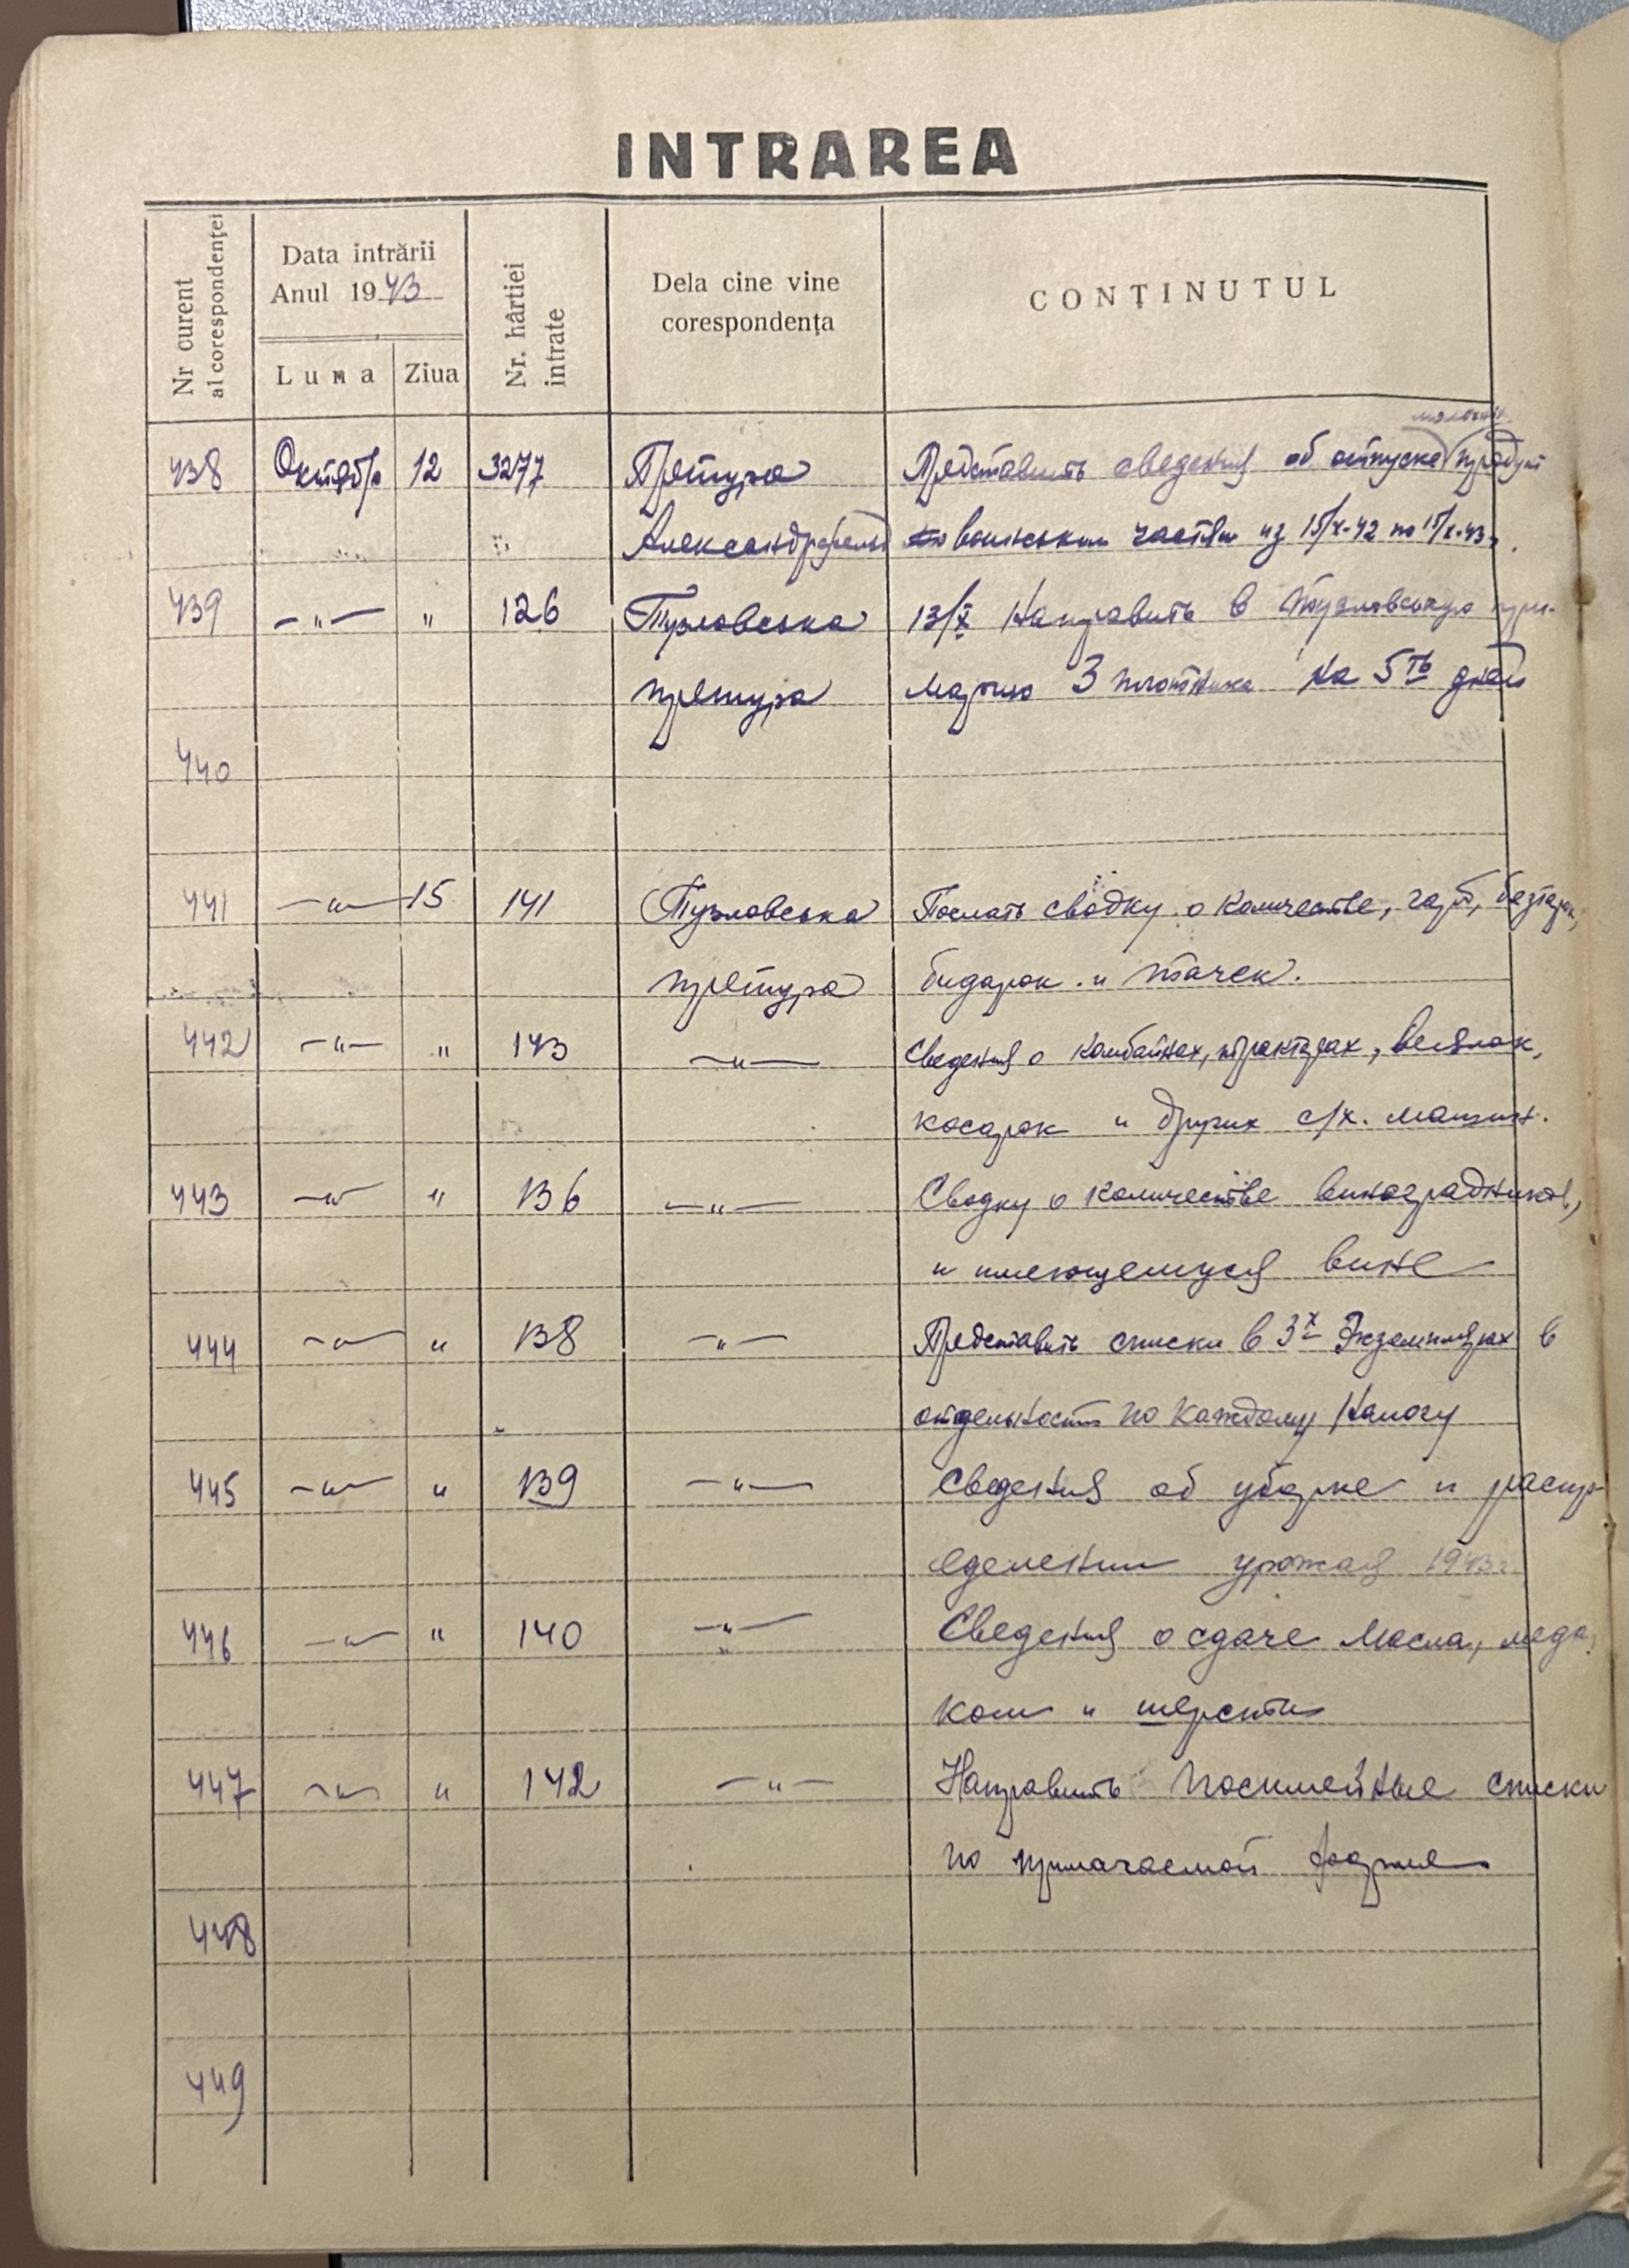 INTRAREA
Nr curent al corespondenței
Data intrării
Anul 1943
Luna Ziua
Nr. hârtiei intrate
Dela cine vine
corespondența
CONȚINUTUL
молочн
438 Октябр 12 3277 Претура Представить сведения об отпуске продукт
Александрфельд воинським частям из 15/X-42 по 15/X-43г.
439 —"— " 126 Тузловська 13/X Направить в Тузловськую при-
претура марию 3 плотника на 5ть дней
440
441 —"— 15 141 Тузловська Послать сводку о количестве, гарб, безтарок,
претура бидарок и тачек.
442 —"— " 143 —"— Сведения о комбайнах, тракторах, веялок,
косарок и других с/х. машин.
443 —"— " 136 —"— Сводку о количестве виноградников,
и имеющемуся вине
444 —"— " 138 —"— Представить списки в 3х экземплярах в
отдельность по каждому налогу
445 —"— " 139 —"— Сведения об уборке и распр-
еделении урожая 1943г.
446 —"— " 140 —"— Сведения о сдаче масла, меда,
кож и шерсти
447 —"— " 142 —"— Направить посимейные списки
по прилагаемой форме
448
449